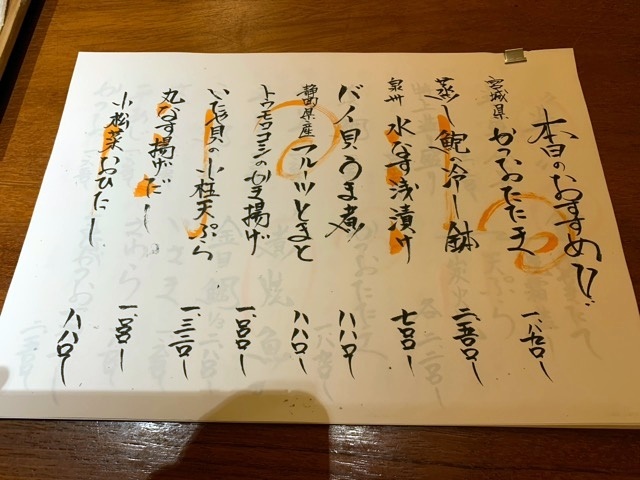 本日のおすめひ
宮城県 かつおたたき 一、八七〇ー
蒸し鮑の冷し鉢 二、五〇〇ー
泉州 水なす浅漬け 七〇〇ー
バイ貝うま煮 八八〇ー
静岡県産 フルーツとまと 八八〇ー
トウモロコシのかき揚げ 一、〇〇〇ー
いたや貝の小柱天ぷら 一、三二〇ー
丸なす揚げだし
小松菜おひたし 八八〇ー